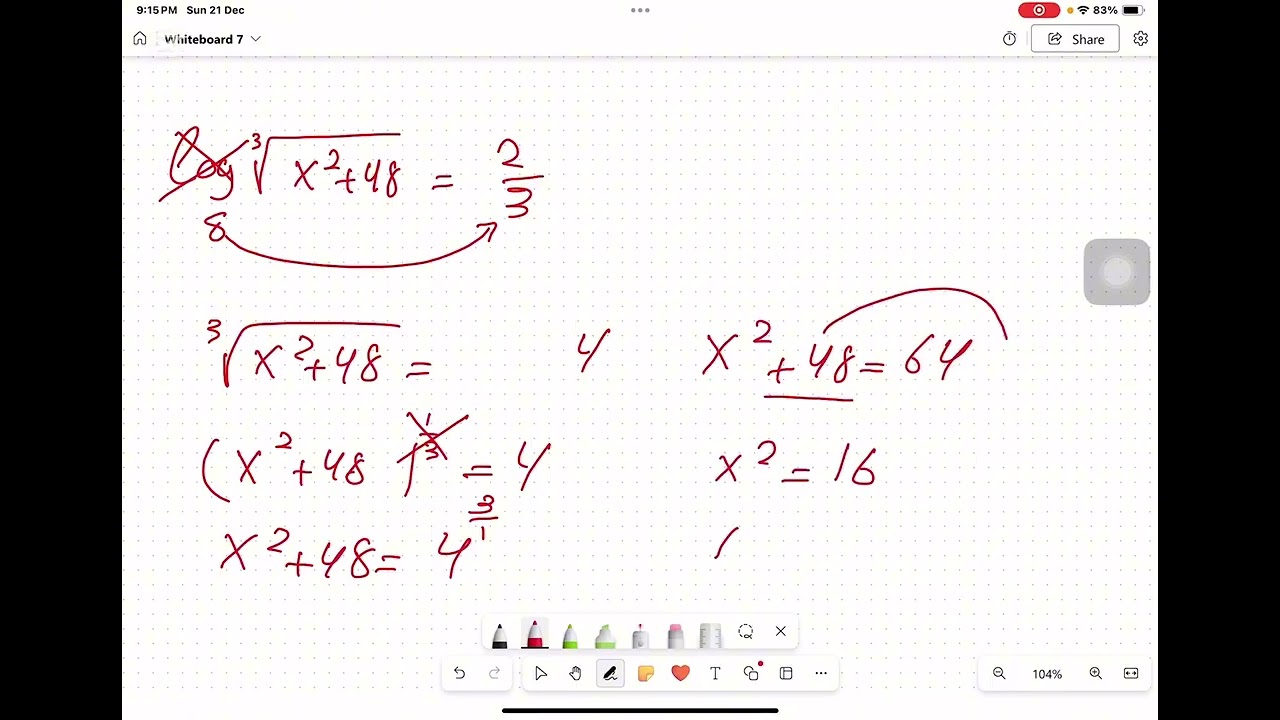 9:15 PM Sun 21 Dec
83%
Whiteboard 7
Share
log₈ ∛(x²+48) = 2/3
∛(x²+48) = 4
(x²+48)^(1/3) = 4
x²+48= 4^(3/1)
x²+48=64
x²=16
T
104%